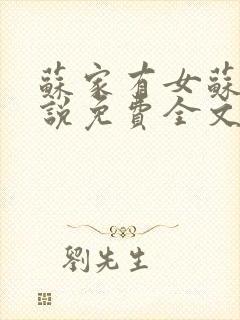 蘇家有女蘇
說免費全文
劉先生